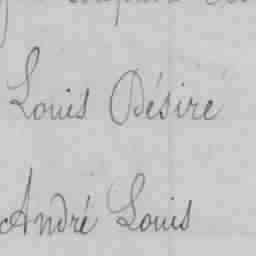 Louis Désiré
André Louis